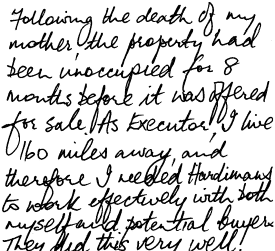 Following the death of my
mother, the property had
been unoccupied for 8
months before it was offered
for sale. As Executor, I live
160 miles away, and
therefore I needed Hardimans
to work effectively with both
myself and potential buyers.
They did this very well.